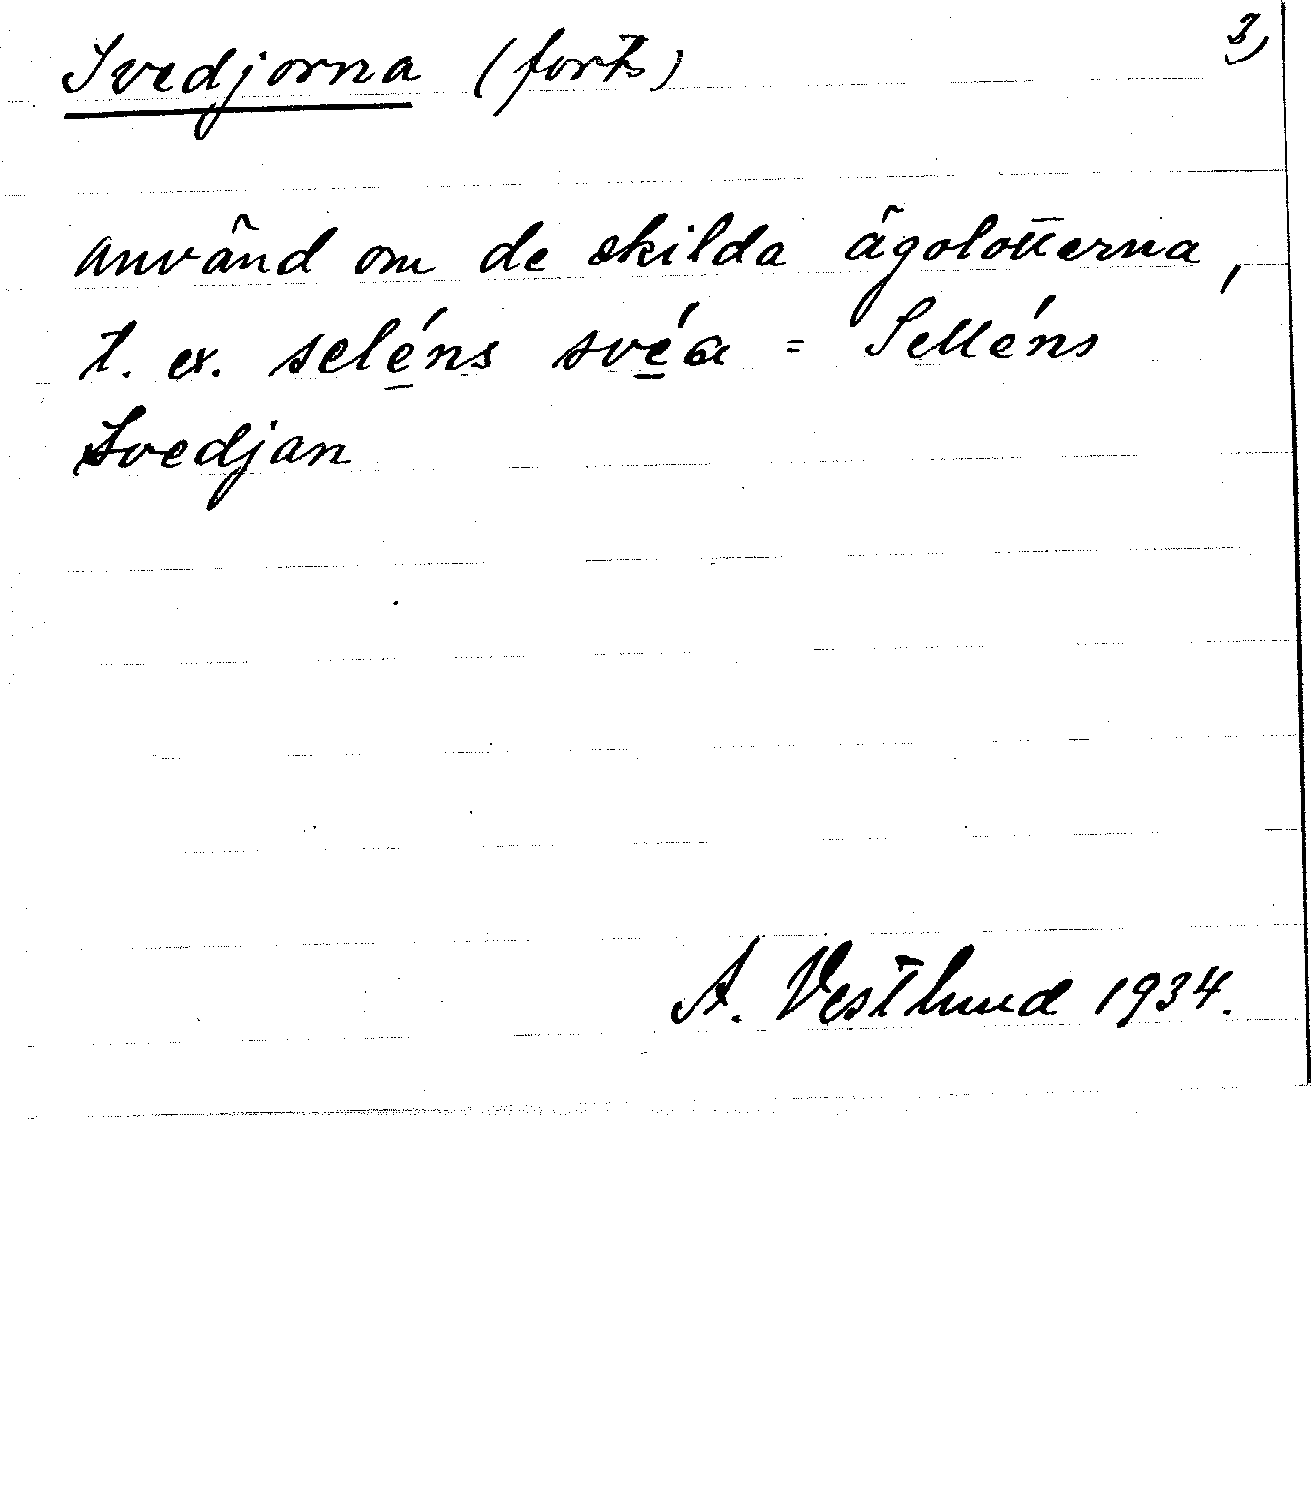 Svedjorna (forts) 3)
använd om de skilda ägolotterna,
t. ex. seléns svéa = Selléns
Svedjan
A. Vestlund 1934.